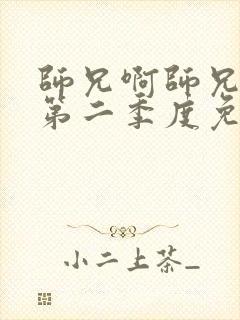 師兄啊師兄
第二季度免
小二上茶_